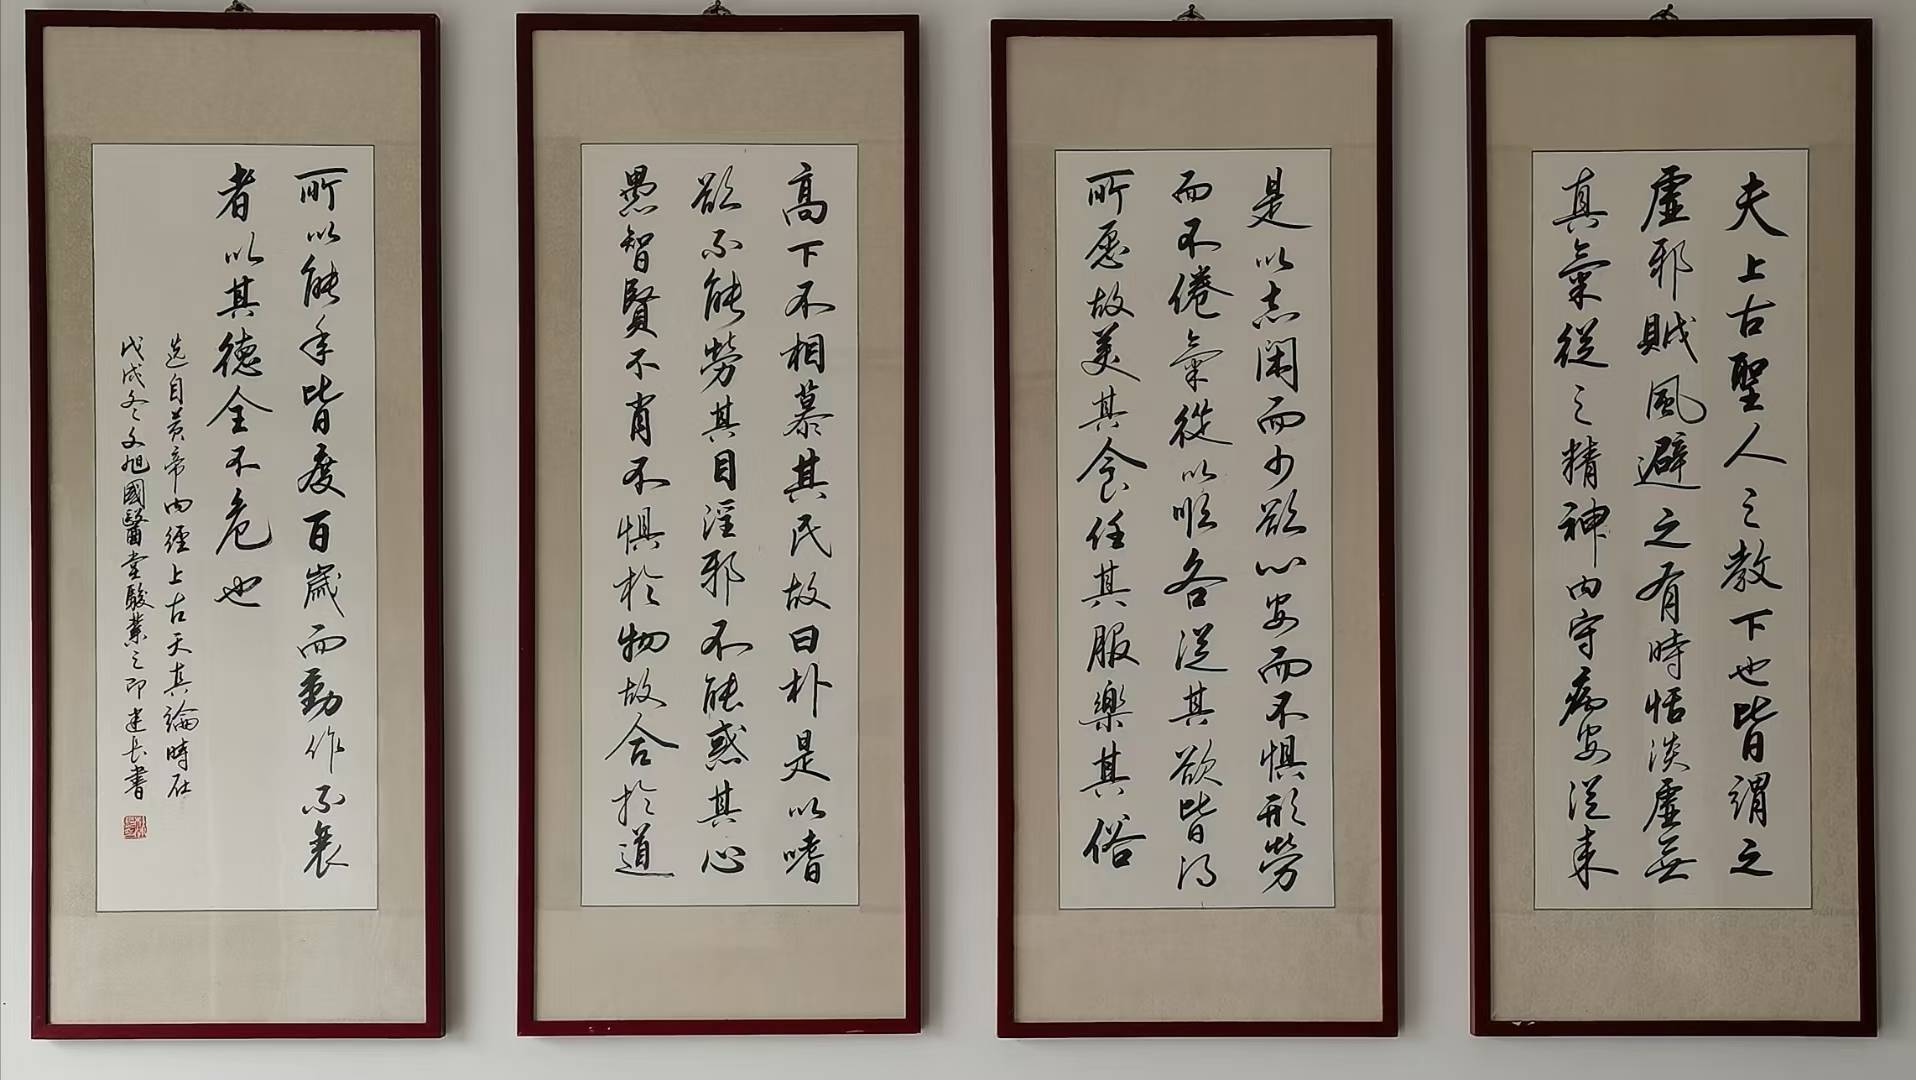 夫上古聖人之教下也皆謂之
虛邪賊風避之有時恬淡虛無
真氣從之精神內守病安從來
是以志閑而少欲心安而不懼形勞
而不倦氣從以順各從其欲皆得
所愿故美其食任其服樂其俗
高下不相慕其民故曰朴是以嗜
欲不能勞其目淫邪不能惑其心
愚智賢不肖不懼於物故合於道
所以能年皆度百歲而動作不衰
者以其德全不危也
選自黃帝內經上古天真論時在
戊戌冬文旭國醫堂駿業之即建長書